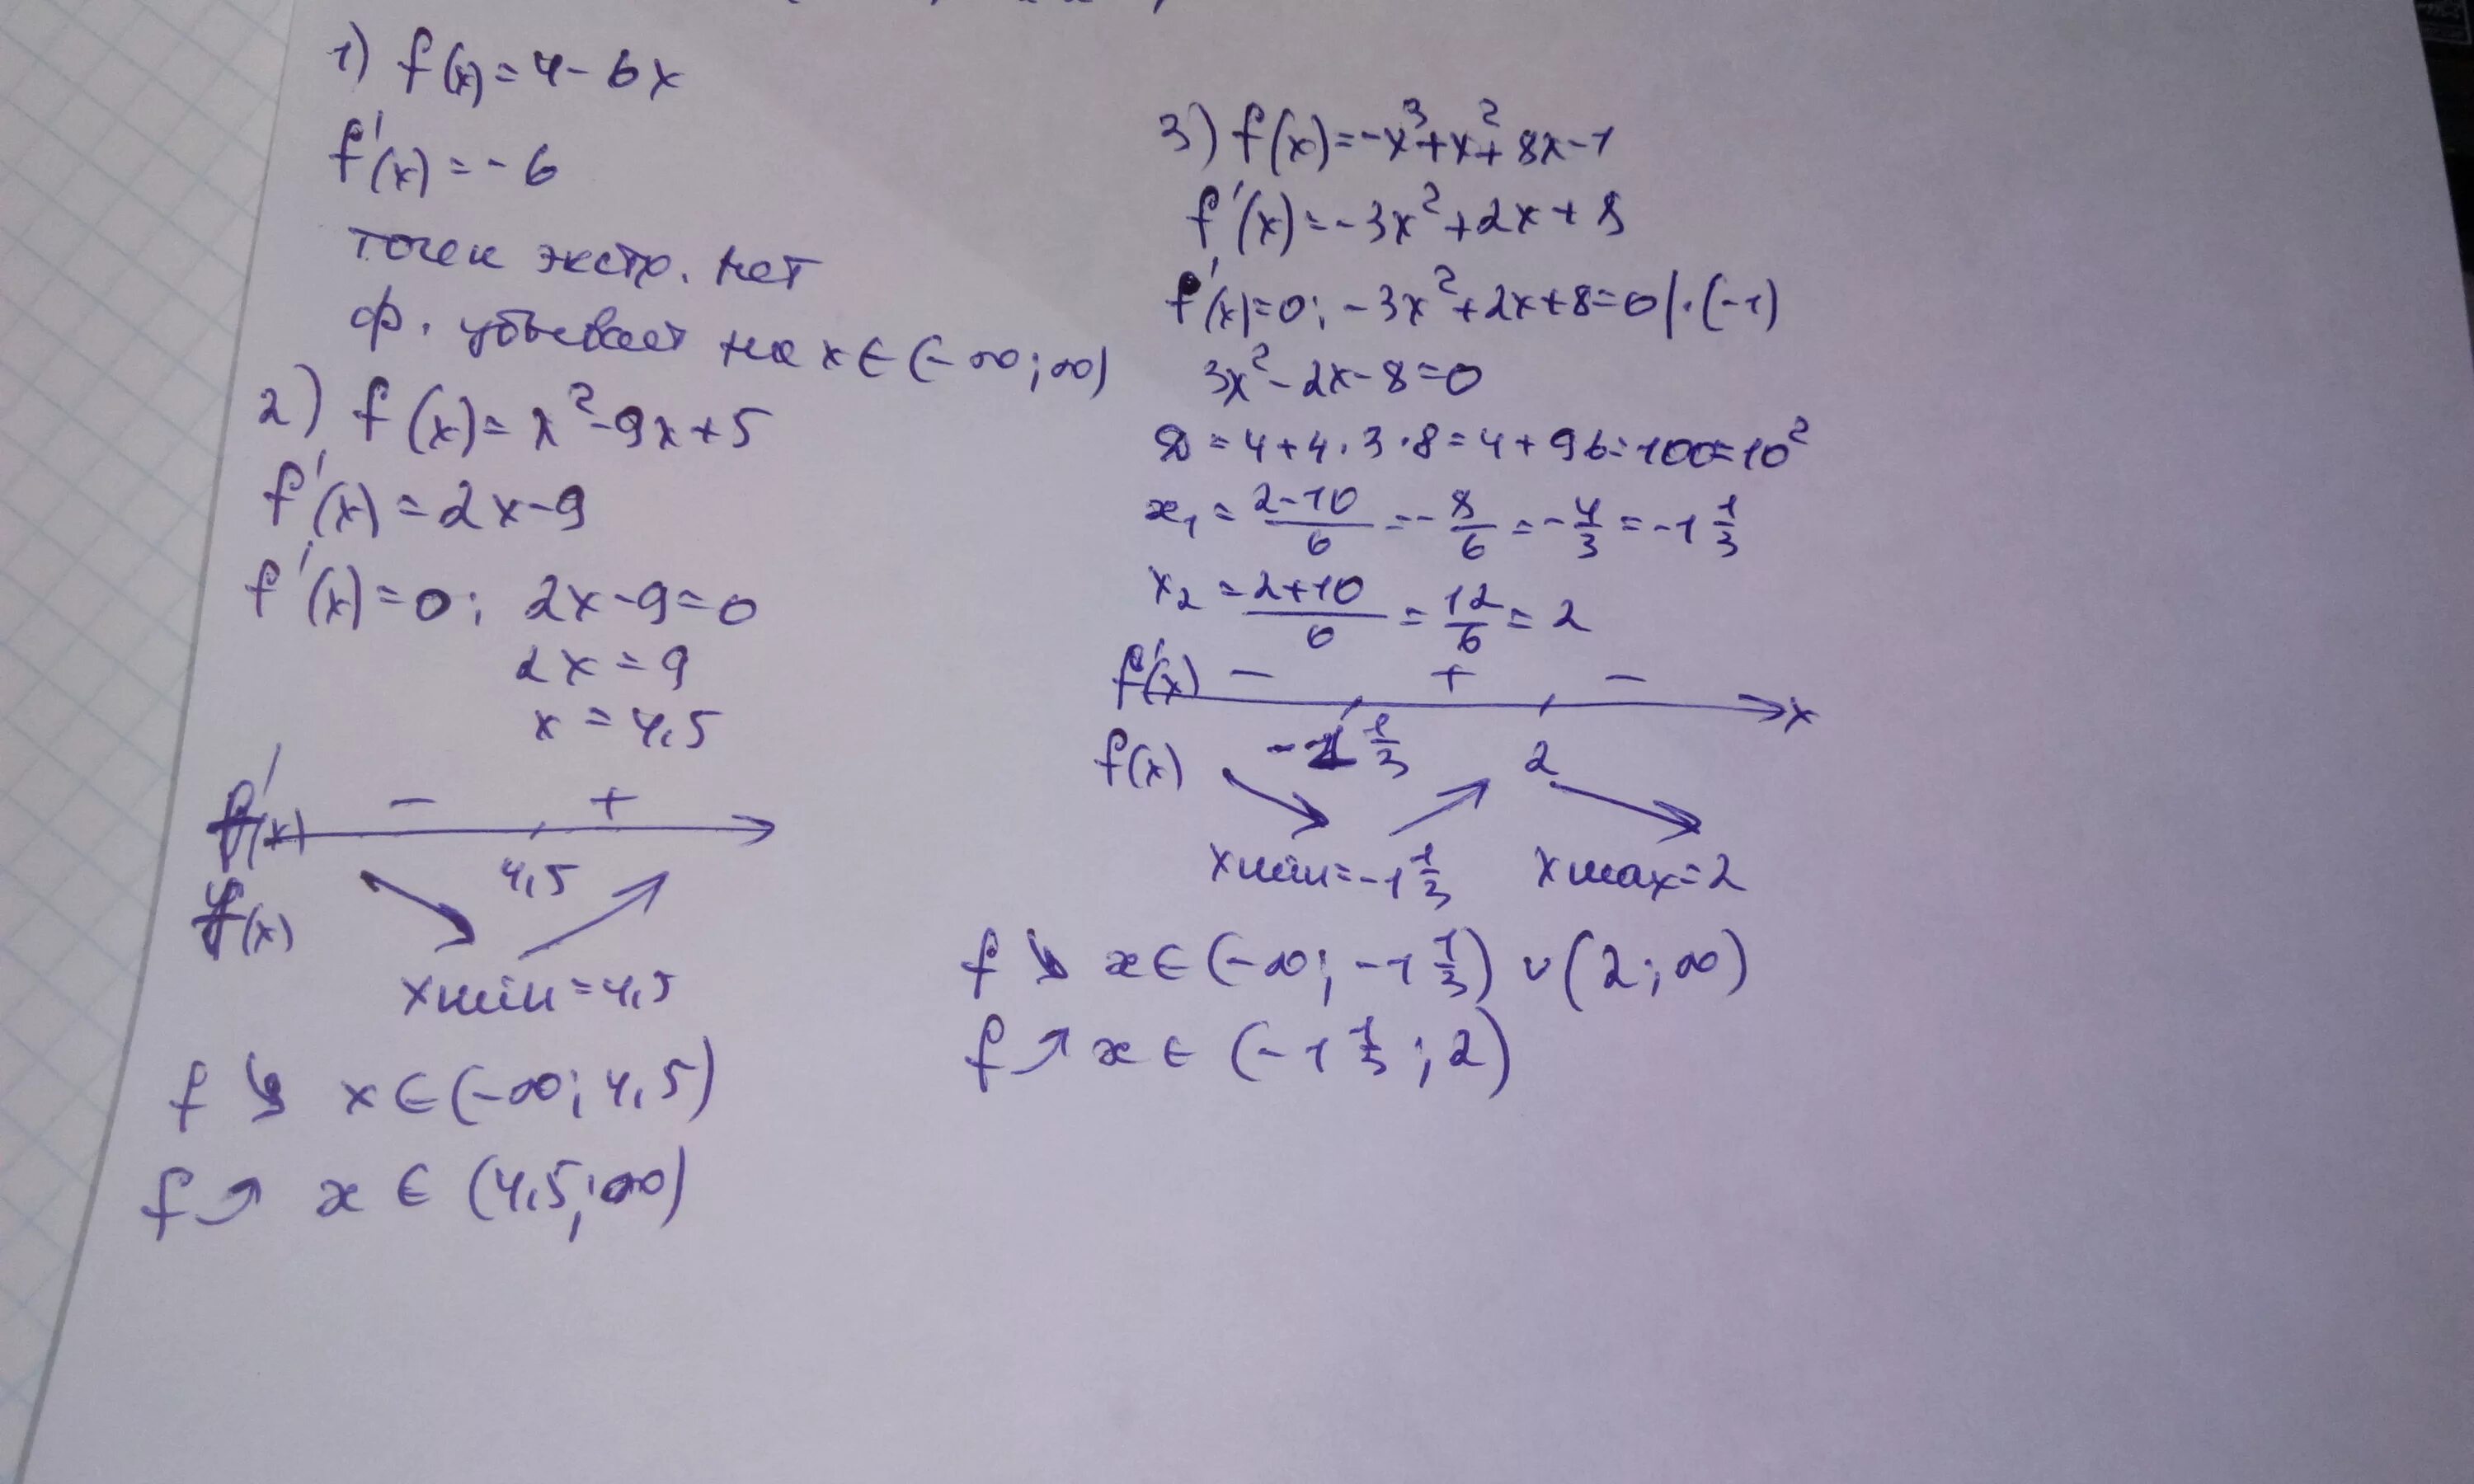 1) f(x)=4-6x
f'(x)=-6
точек экстр. нет
ф. убывает на x∈(-∞;∞)
2) f(x)=x²-9x+5
f'(x)=2x-9
f'(x)=0; 2x-9=0
2x=9
x=4,5
f'(x) - +
4,5
f(x)
xmin=4,5
f ↘ x∈(-∞; 4,5)
f ↗ x∈(4,5;∞)
3) f(x)=-x³+x²+8x-1
f'(x)=-3x²+2x+8
f'(x)=0; -3x²+2x+8=0|·(-1)
3x²-2x-8=0
D=4+4·3·8=4+96=100=10²
x₁=(2-10)/6=-8/6=-4/3=-1 1/3
x₂=(2+10)/6=12/6=2
f'(x) - + - x
f(x) -1 1/3 2
xmin=-1 1/3 xmax=2
f ↘ x∈(-∞; -1 1/3)∪(2;∞)
f ↗ x∈(-1 1/3; 2)